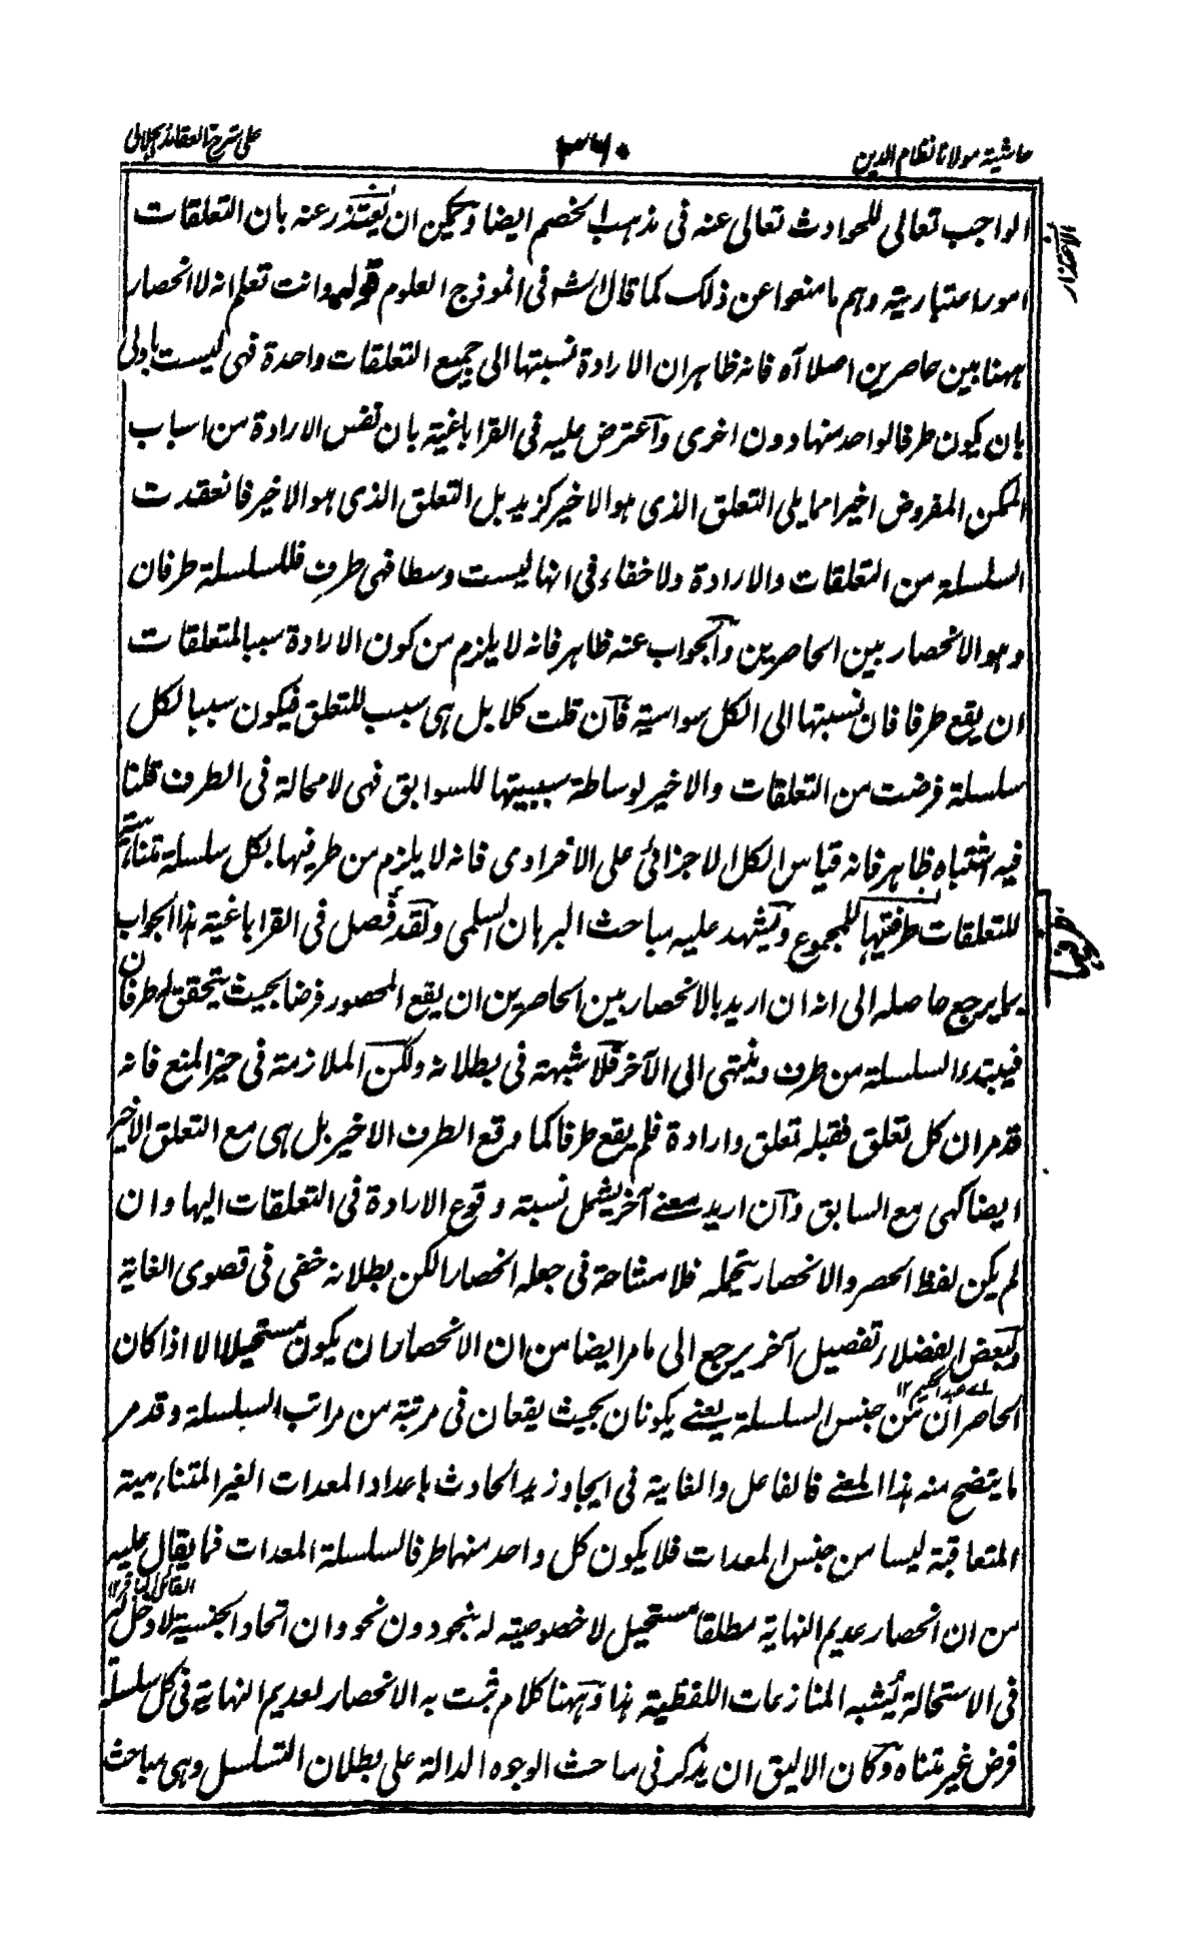 حاشية مولانا نظام الدين
٣٦٠
على شرح العقائد الجلالى
الواجب تعالى للحوادث تعالى عنه فى مذهب الخصم ايضا ويمكن ان يعتذر عنه بان التعلقات
امور اعتبارية وهم ما منعوا عن ذلك كما قال الش فى انموذج العلوم قوله وانت تعلم انه لا انحصار
ههنا بين حاصرين اصلا آه فانه ظاهر ان الارادة نسبتها الى جميع التعلقات واحدة فهى ليست باولى
بان يكون طرفا لواحد منها دون اخرى وآعترض عليه فى القراباغية بان نفس الارادة من اسباب
الممكن المفروض اخيرا مما يلى التعلق الذى هو الاخير كزيد بل التعلق الذى هو الاخير فانعقدت
السلسلة من التعلقات والارادة ولا خفاء فى انها ليست وسطا فهى طرف فللسلسلة طرفان
وهو الانحصار بين الحاصرين وآلجواب عنه ظاهر فانه لا يلزم من كون الارادة سببا للتعلقات
ان يقع طرفا فان نسبتها الى الكل سواسية فآن قلت كلا بل هى سبب للتعلق فيكون سببا لكل
سلسلة فرضت من التعلقات والاخير لوساطة سببيتها للسوابق فهى لا محالة فى الطرف قلنا
فيه اشتباه ظاهر فانه قياس الكل الاجزائى على الافرادى فانه لا يلزم من طرفيتها لكل سلسلة متناهية
للتعلقات طرفيتها للمجموع ويشهد عليه مباحث البرهان السلمى ولقد فصل فى القراباغية هذا الجواب
بما يرجع حاصله الى انه ان اريد بالانحصار بين الحاصرين ان يقع المحصور فرضا بحيث يتحقق له طرفان
فيبتدء السلسلة من طرف وينتهى الى الآخر فلا شبهة فى بطلانه ولكن الملازمة فى حيز المنع فانه
قد مر ان كل تعلق فقبله تعلق وارادة فلم يقع طرفا كما وقع الطرف الاخير بل هى مع التعلق الاخير
ايضا كهى مع السابق وآن اريد معنے آخر يشمل نسبة وقوع الارادة فى التعلقات اليها وان
لم يكن لفظ الحصر والانحصار يتحمله فلا مشاحة فى جعله انحصارا لكن بطلانه خفى فى قصوى الغاية
ولبعض الفضلاء تفصيل آخر يرجع الى ما مر ايضا من ان الانحصار ان يكون مستحيلا الا اذا كان
الحاصران من جنس السلسلة يعنے يكونان بحيث يقعان فى مرتبة من مراتب السلسلة وقد مر
ما يتضح منه هذا المعنے فالفاعل والغاية فى ايجاد زيد الحادث باعداد المعدات الغير المتناهية
المتعاقبة ليسا من جنس المعدات فلا يكون كل واحد منهما طرفا لسلسلة المعدات فما يقال عليه
من ان انحصار عديم النهاية مطلقا مستحيل لا خصوصية له بنحو دون نحو وان اتحاد الجنسية لا دخل له
فى الاستحالة يشبه المنازعات اللفظية هذا وههنا كلام ثبت به الانحصار لعديم النهاية فى كل سلسلة
فرض غير متناه وكان الاليق ان يذكر فى مباحث الوجوه الدالة على بطلان التسلسل وهى مباحث